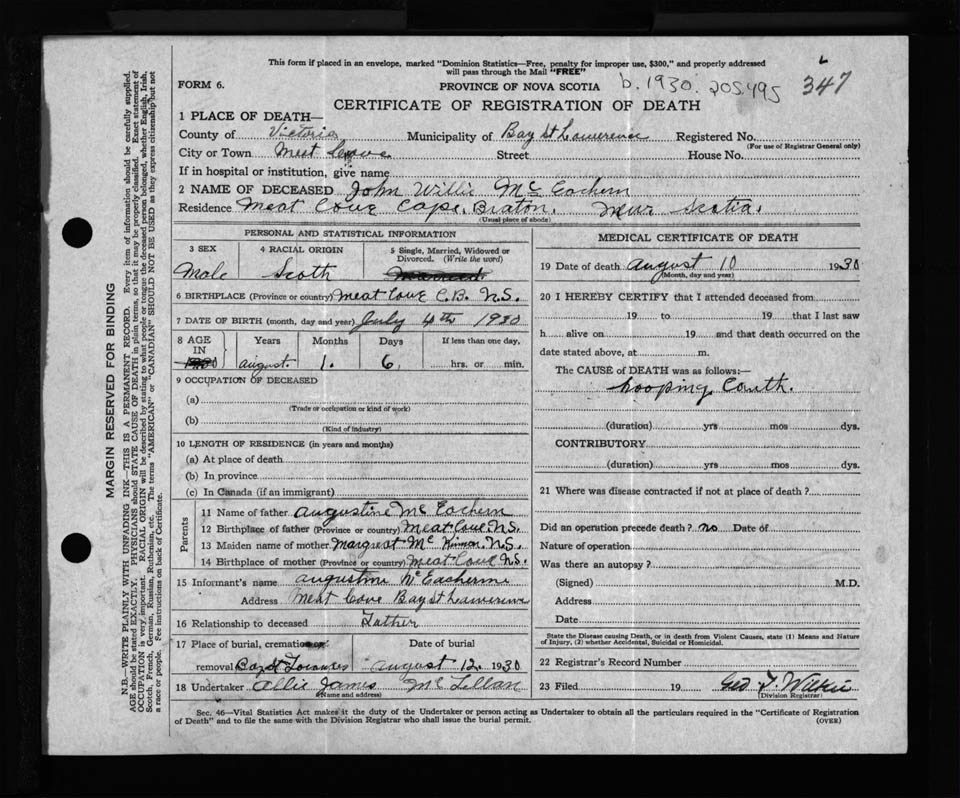 This form if placed in an envelope, marked "Dominion Statistics—Free, penalty for improper use, $300," and properly addressed
will pass through the Mail "FREE"
FORM 6.
PROVINCE OF NOVA SCOTIA
b. 1930. 205495
347
CERTIFICATE OF REGISTRATION OF DEATH
1 PLACE OF DEATH—
County of Victoria Municipality of Bay St Lawerence Registered No.
(For use of Registrar General only)
City or Town Meet Cove Street House No.
If in hospital or institution, give name
2 NAME OF DECEASED John Willie Mc Eachern
Residence Meat Cove Cape Braton. Scotia.
(Usual place of abode)
PERSONAL AND STATISTICAL INFORMATION
3 SEX
Male
4 RACIAL ORIGIN
Scoth
5 Single, Married, Widowed or
Divorced. (Write the word)
6 BIRTHPLACE (Province or country) Meat Cove C.B. N.S.
7 DATE OF BIRTH (month, day and year) July 4th 1930
8 AGE IN
Years Months Days If less than one day,
august. 1. 6. hrs. or min.
9 OCCUPATION OF DECEASED
(a)
(Trade or occupation or kind of work)
(b)
(Kind of industry)
10 LENGTH OF RESIDENCE (in years and months)
(a) At place of death
(b) In province
(c) In Canada (if an immigrant)
Parents
11 Name of father augustine Mc Eachern
12 Birthplace of father (Province or country) Meat Cove N.S.
13 Maiden name of mother Margreat Mc Kinnon. N.S.
14 Birthplace of mother (Province or country) Meat Cove N.S.
15 Informant's name augustine McEachern
Address Meat Cove Bay St Lawerence
16 Relationship to deceased Father
17 Place of burial, cremation or
removal
Date of burial
august 12. 1930
18 Undertaker Allie James Mc Lellan
(Name and address)
MEDICAL CERTIFICATE OF DEATH
19 Date of death august 10 1930
(Month, day and year)
20 I HEREBY CERTIFY that I attended deceased from
19 to 19 that I last saw
h alive on 19 and that death occurred on the
date stated above, at m.
The CAUSE of DEATH was as follows:—
hooping Couth.
(duration) yrs mos dys.
CONTRIBUTORY
(duration) yrs mos dys.
21 Where was disease contracted if not at place of death?
Did an operation precede death? no Date of
Nature of operation
Was there an autopsy?
(Signed) M.D.
Address
Date
State the Disease causing Death, or in death from Violent Causes, state (1) Means and Nature
of Injury, (2) whether Accidental, Suicidal or Homicidal.
22 Registrar's Record Number
23 Filed 19 Geo F. Wilkie
(Division Registrar)
Sec. 46—Vital Statistics Act makes it the duty of the Undertaker or person acting as Undertaker to obtain all the particulars required in the "Certificate of Registration
of Death" and to file the same with the Division Registrar who shall issue the burial permit.
(OVER)
MARGIN RESERVED FOR BINDING
N.B.—WRITE PLAINLY WITH UNFADING INK—THIS IS A PERMANENT RECORD. Every item of information should be carefully supplied.
AGE should be stated EXACTLY. PHYSICIANS should STATE CAUSE OF DEATH in plain terms, so that it may be properly classified. Exact statement of
OCCUPATION is very important. RACIAL ORIGIN will be described by stating to what people or tongue the deceased person belonged, whether English, Irish,
Scotch, French, German, Russian, Ruthenian, etc. The terms "AMERICAN" or "CANADIAN" SHOULD NOT BE USED as they express citizenship but not
a race or people. See instructions on back of Certificate.